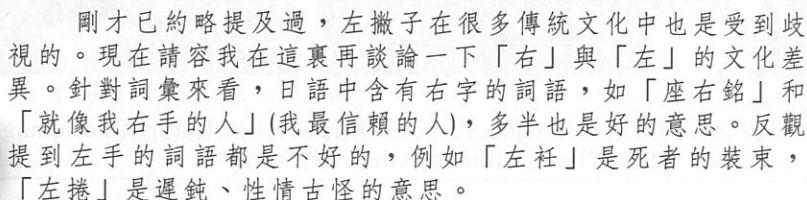 剛才已約略提及過，左撇子在很多傳統文化中也是受到歧
視的。現在請容我在這裏再談論一下「右」與「左」的文化差
異。針對詞彙來看，日語中含有右字的詞語，如「座右銘」和
「就像我右手的人」(我最信賴的人)，多半也是好的意思。反觀
提到左手的詞語都是不好的，例如「左衽」是死者的裝束，
「左捲」是遲鈍、性情古怪的意思。